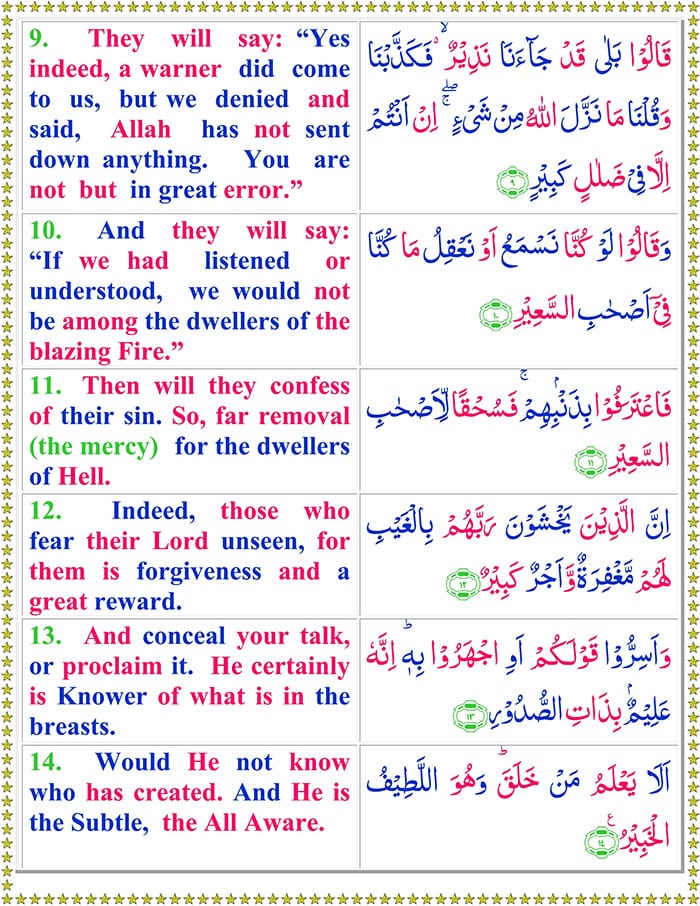 9. They will say: “Yes
indeed, a warner did come
to us, but we denied and
said, Allah has not sent
down anything. You are
not but in great error.”
قَالُوۡا بَلٰى قَدۡ جَآءَنَا نَذِيۡرٌ ۙ فَكَذَّبۡنَا
وَقُلۡنَا مَا نَزَّلَ اللّٰهُ مِنۡ شَىۡءٍ ۖۚ اِنۡ اَنۡتُمۡ
اِلَّا فِىۡ ضَلٰلٍ كَبِيۡرٍ ۹
10. And they will say:
“If we had listened or
understood, we would not
be among the dwellers of the
blazing Fire.”
وَقَالُوۡا لَوۡ كُنَّا نَسۡمَعُ اَوۡ نَعۡقِلُ مَا كُنَّا
فِىۡۤ اَصۡحٰبِ السَّعِيۡرِ ۱۰
11. Then will they confess
of their sin. So, far removal
(the mercy) for the dwellers
of Hell.
فَاعۡتَرَفُوۡا بِذَنۡۢبِهِمۡ ۚ فَسُحۡقًا لِّاَصۡحٰبِ
السَّعِيۡرِ ۱۱
12. Indeed, those who
fear their Lord unseen, for
them is forgiveness and a
great reward.
اِنَّ الَّذِيۡنَ يَخۡشَوۡنَ رَبَّهُمۡ بِالۡغَيۡبِ
لَهُمۡ مَّغۡفِرَةٌ وَّاَجۡرٌ كَبِيۡرٌ ۱۲
13. And conceal your talk,
or proclaim it. He certainly
is Knower of what is in the
breasts.
وَاَسِرُّوۡا قَوۡلَكُمۡ اَوِ اجۡهَرُوۡا بِهٖ ؕ اِنَّهٗ
عَلِيۡمٌۢ بِذَاتِ الصُّدُوۡرِ ۱۳
14. Would He not know
who has created. And He is
the Subtle, the All Aware.
اَلَا يَعۡلَمُ مَنۡ خَلَقَ ؕ وَهُوَ اللَّطِيۡفُ
الۡخَبِيۡرُ ۱۴ ع